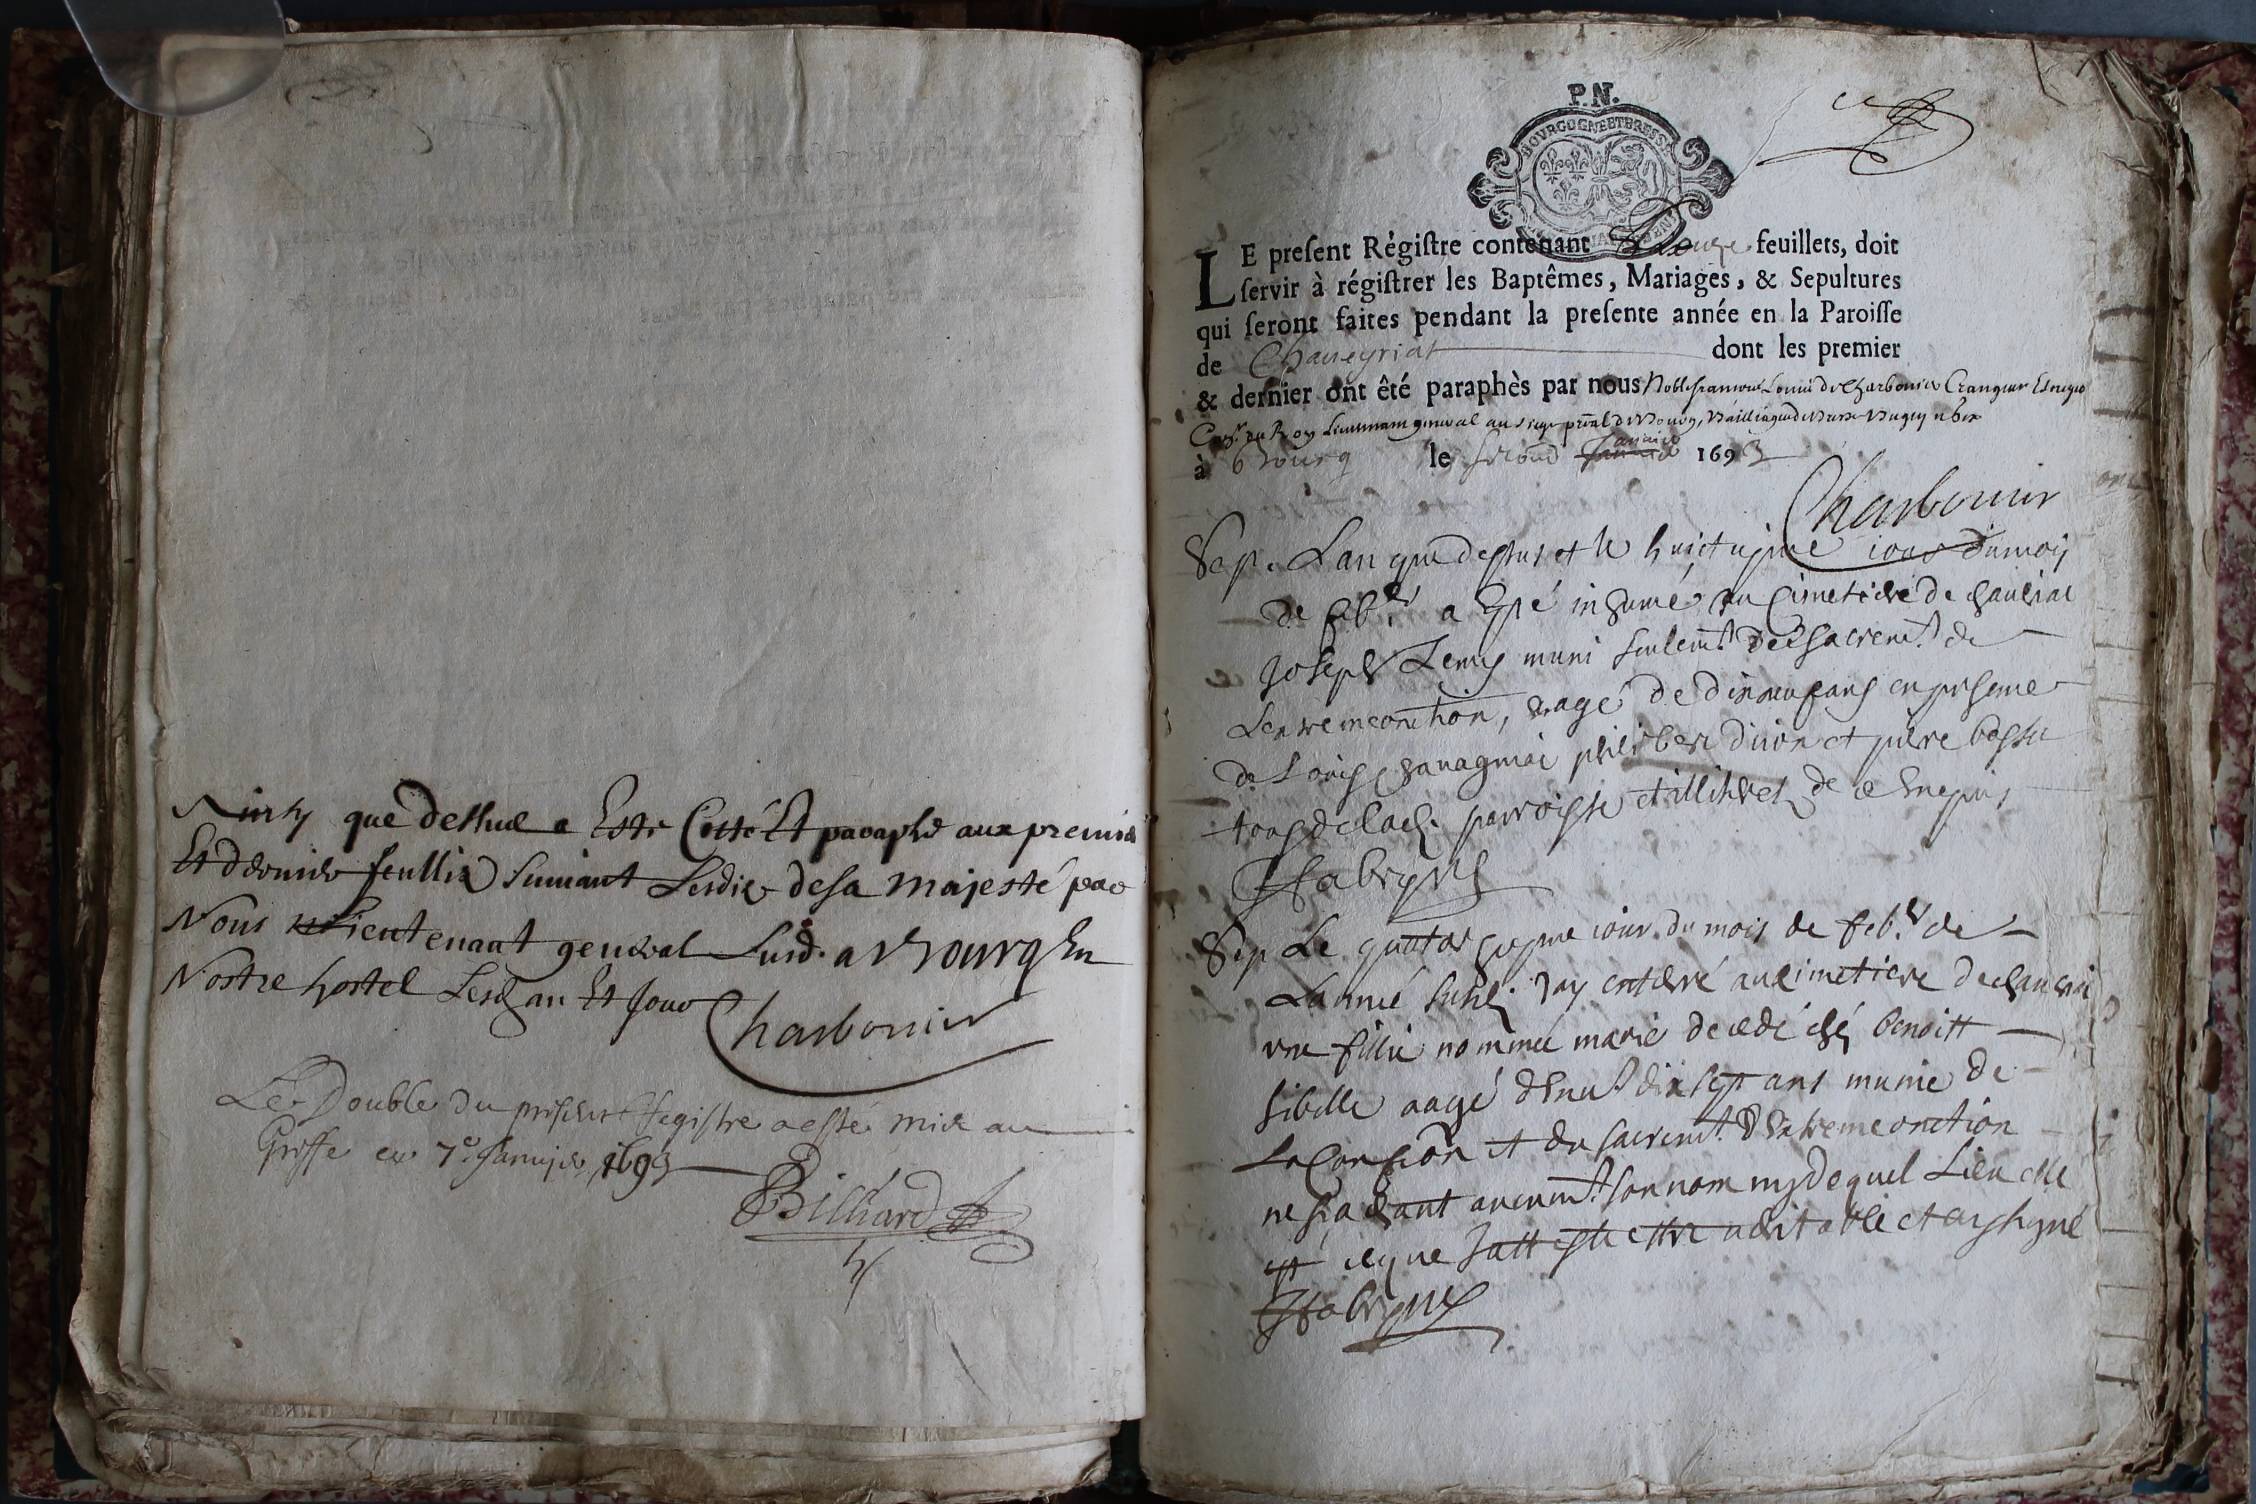 Ainsy que dessus a Este Cotté Et paraphé aux premier
Et dernier feullir suivant Lesdit de sa majesté par
Nous Lieutenant general Susd. a Bourg En
Nostre hostel Lesd. an Et Jour Charbonier
Le Double du present Registre a esté mis au
Greffe ce 7e Janvier 1693
Billiard
P.N.
BOURGOGNE ET BRESSE
LE present Régistre contenant feuillets, doit
servir à régistrer les Baptêmes, Mariages, & Sepultures
qui seront faites pendant la presente année en la Paroisse
de Chaveyriat dont les premier
& dernier ont êté paraphès par nous Noble Louis de Charbonier Crangeac Escuyer
Consr. du Roy Lieutenant general au siege pnal de Bourg, Bailliage de Bresse Bugey
à Bourg le second Janvier 1693
Charbonier
Sep. L'an que dessus et le huictiesme jour du mois
de febr. a esté inhumé au Cimetiere de chaveiriat
Joseph muni seulemt. de sacremt. de
L'extremeonction, aagé de dixneuf ans en presence
de Louis philibert et piere bossu
tous de lad. parroisse et illitres de ce enquis
Sep Le quatorziesme iour du mois de feb. de
L'année susd. j'ay enterré au cimetiere de
une fillie nommée marie decedé chez benoitt
sibelle aagé d'env. dix sept ans munie de
La Confon et du sacremt. d'Extremeonction
ne sçachant aucunmt. son nom ny de quel Lieu elle
est ce que J'atteste ettre veritable et ay signé